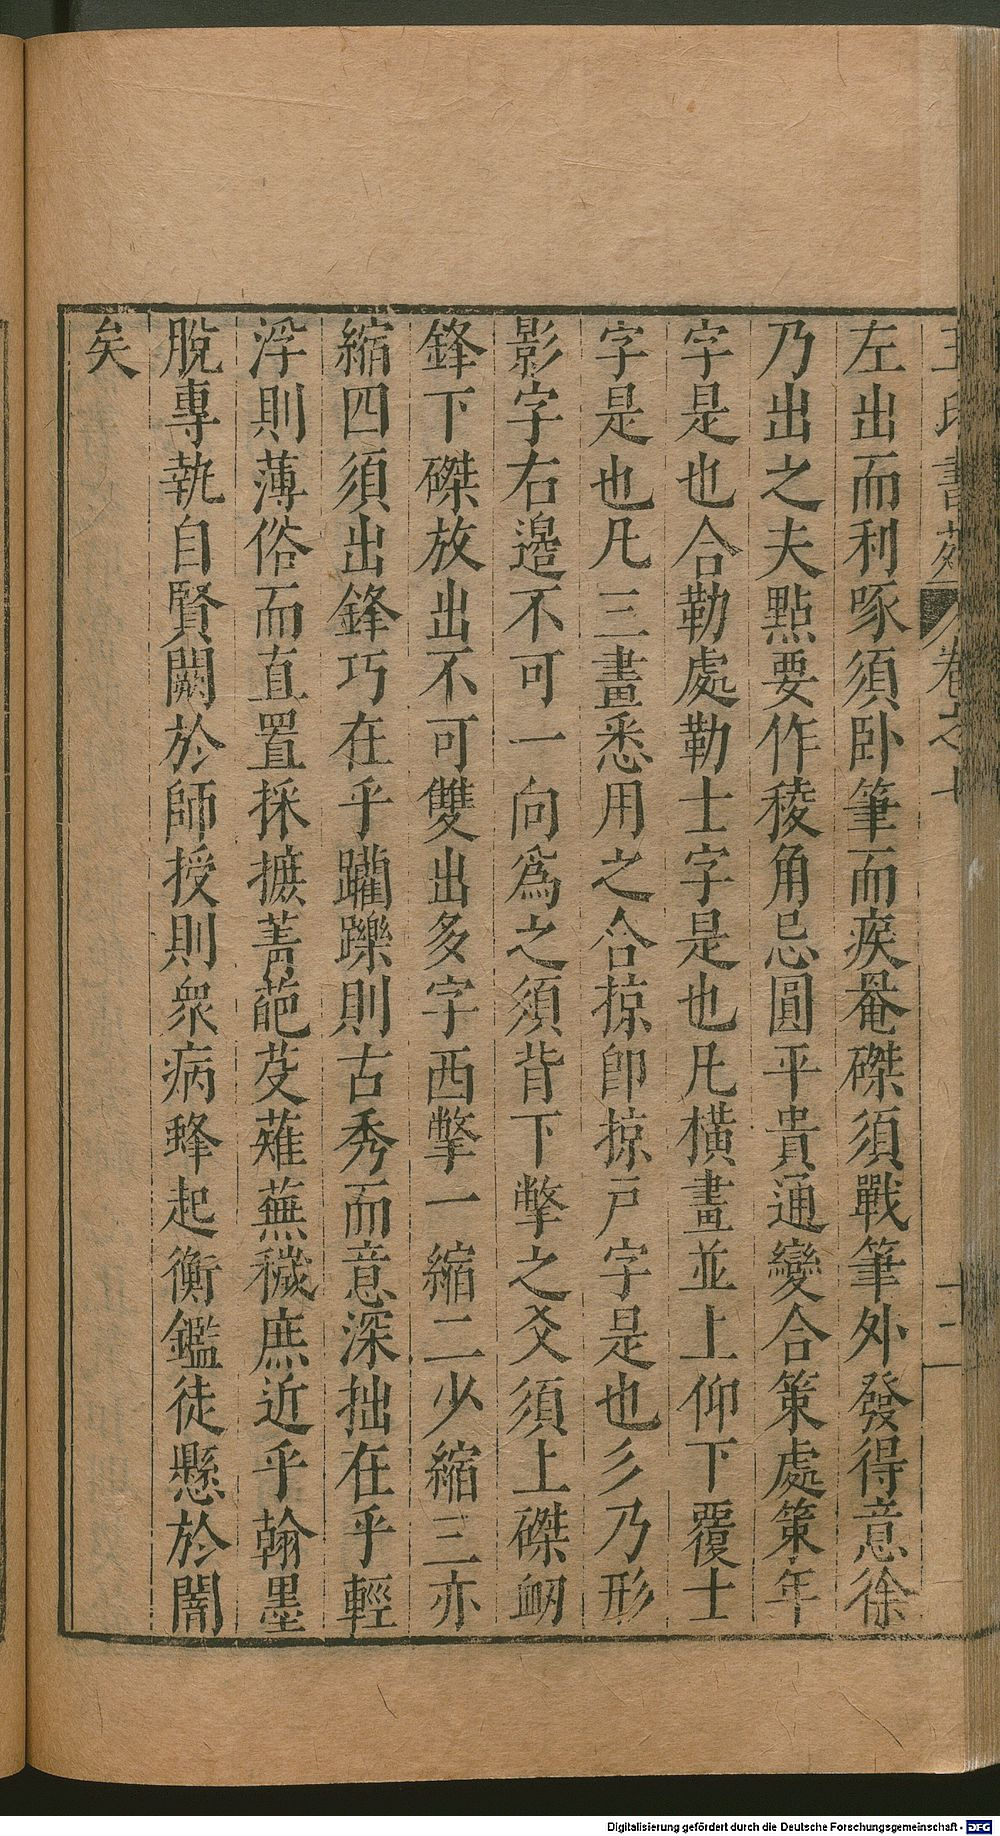 王氏書苑 卷之七 十二
左出而利啄須卧筆而疾罨磔須戰筆外發得意徐
乃出之夫點要作稜角忌圓平貴通變合策處策年
字是也合勒處勒士字是也凡橫畫並上仰下覆士
字是也凡三畫悉用之合掠即掠戸字是也彡乃形
影字右邉不可一向為之須背下撆之爻須上磔衂
鋒下磔放出不可雙出多字西撆一縮二少縮三亦
縮四須出鋒巧在乎躩踈則古秀而意深拙在乎輕
浮則薄俗而直置採摭菁葩芟薙蕪穢庶近乎翰墨
脫專執自賢闕於師授則衆病蜂起衡鑑徒懸於闇
矣
Digitalisierung gefördert durch die Deutsche Forschungsgemeinschaft - DFG